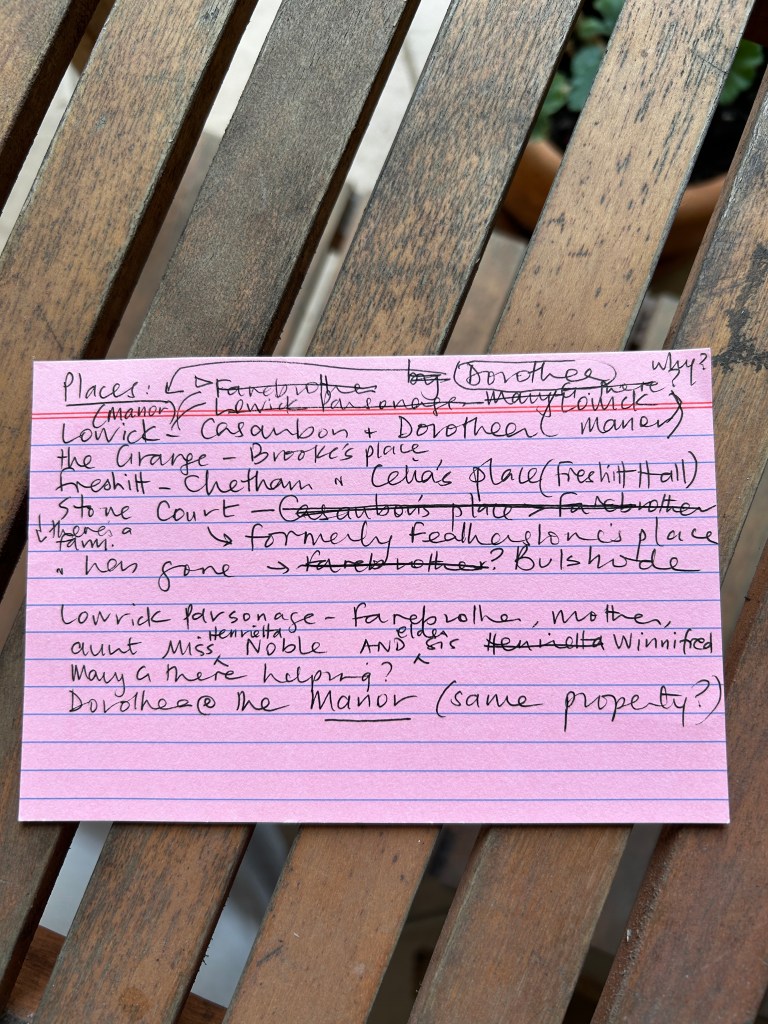 Places: Farebrother by Dorothea why?
(Manor) Lowick Parsonage - Mary G here?
Lowick - Casaubon + Dorothea (Lowick manor)
the Grange - Brooke's place
Freshitt - Chetham " Celia's place (Freshitt Hall)
Stone Court - Casaubon's place > Farebrother
↓ there's a farm. ↳ formerly Featherstone's place
" has gone → Farebrother? Bulstrode
Lowrick Parsonage - Farebrother, mother,
aunt Miss Henrietta Noble AND elder sis Henrietta Winnifred
Mary G there helping?
Dorothea @ the Manor (same property?)